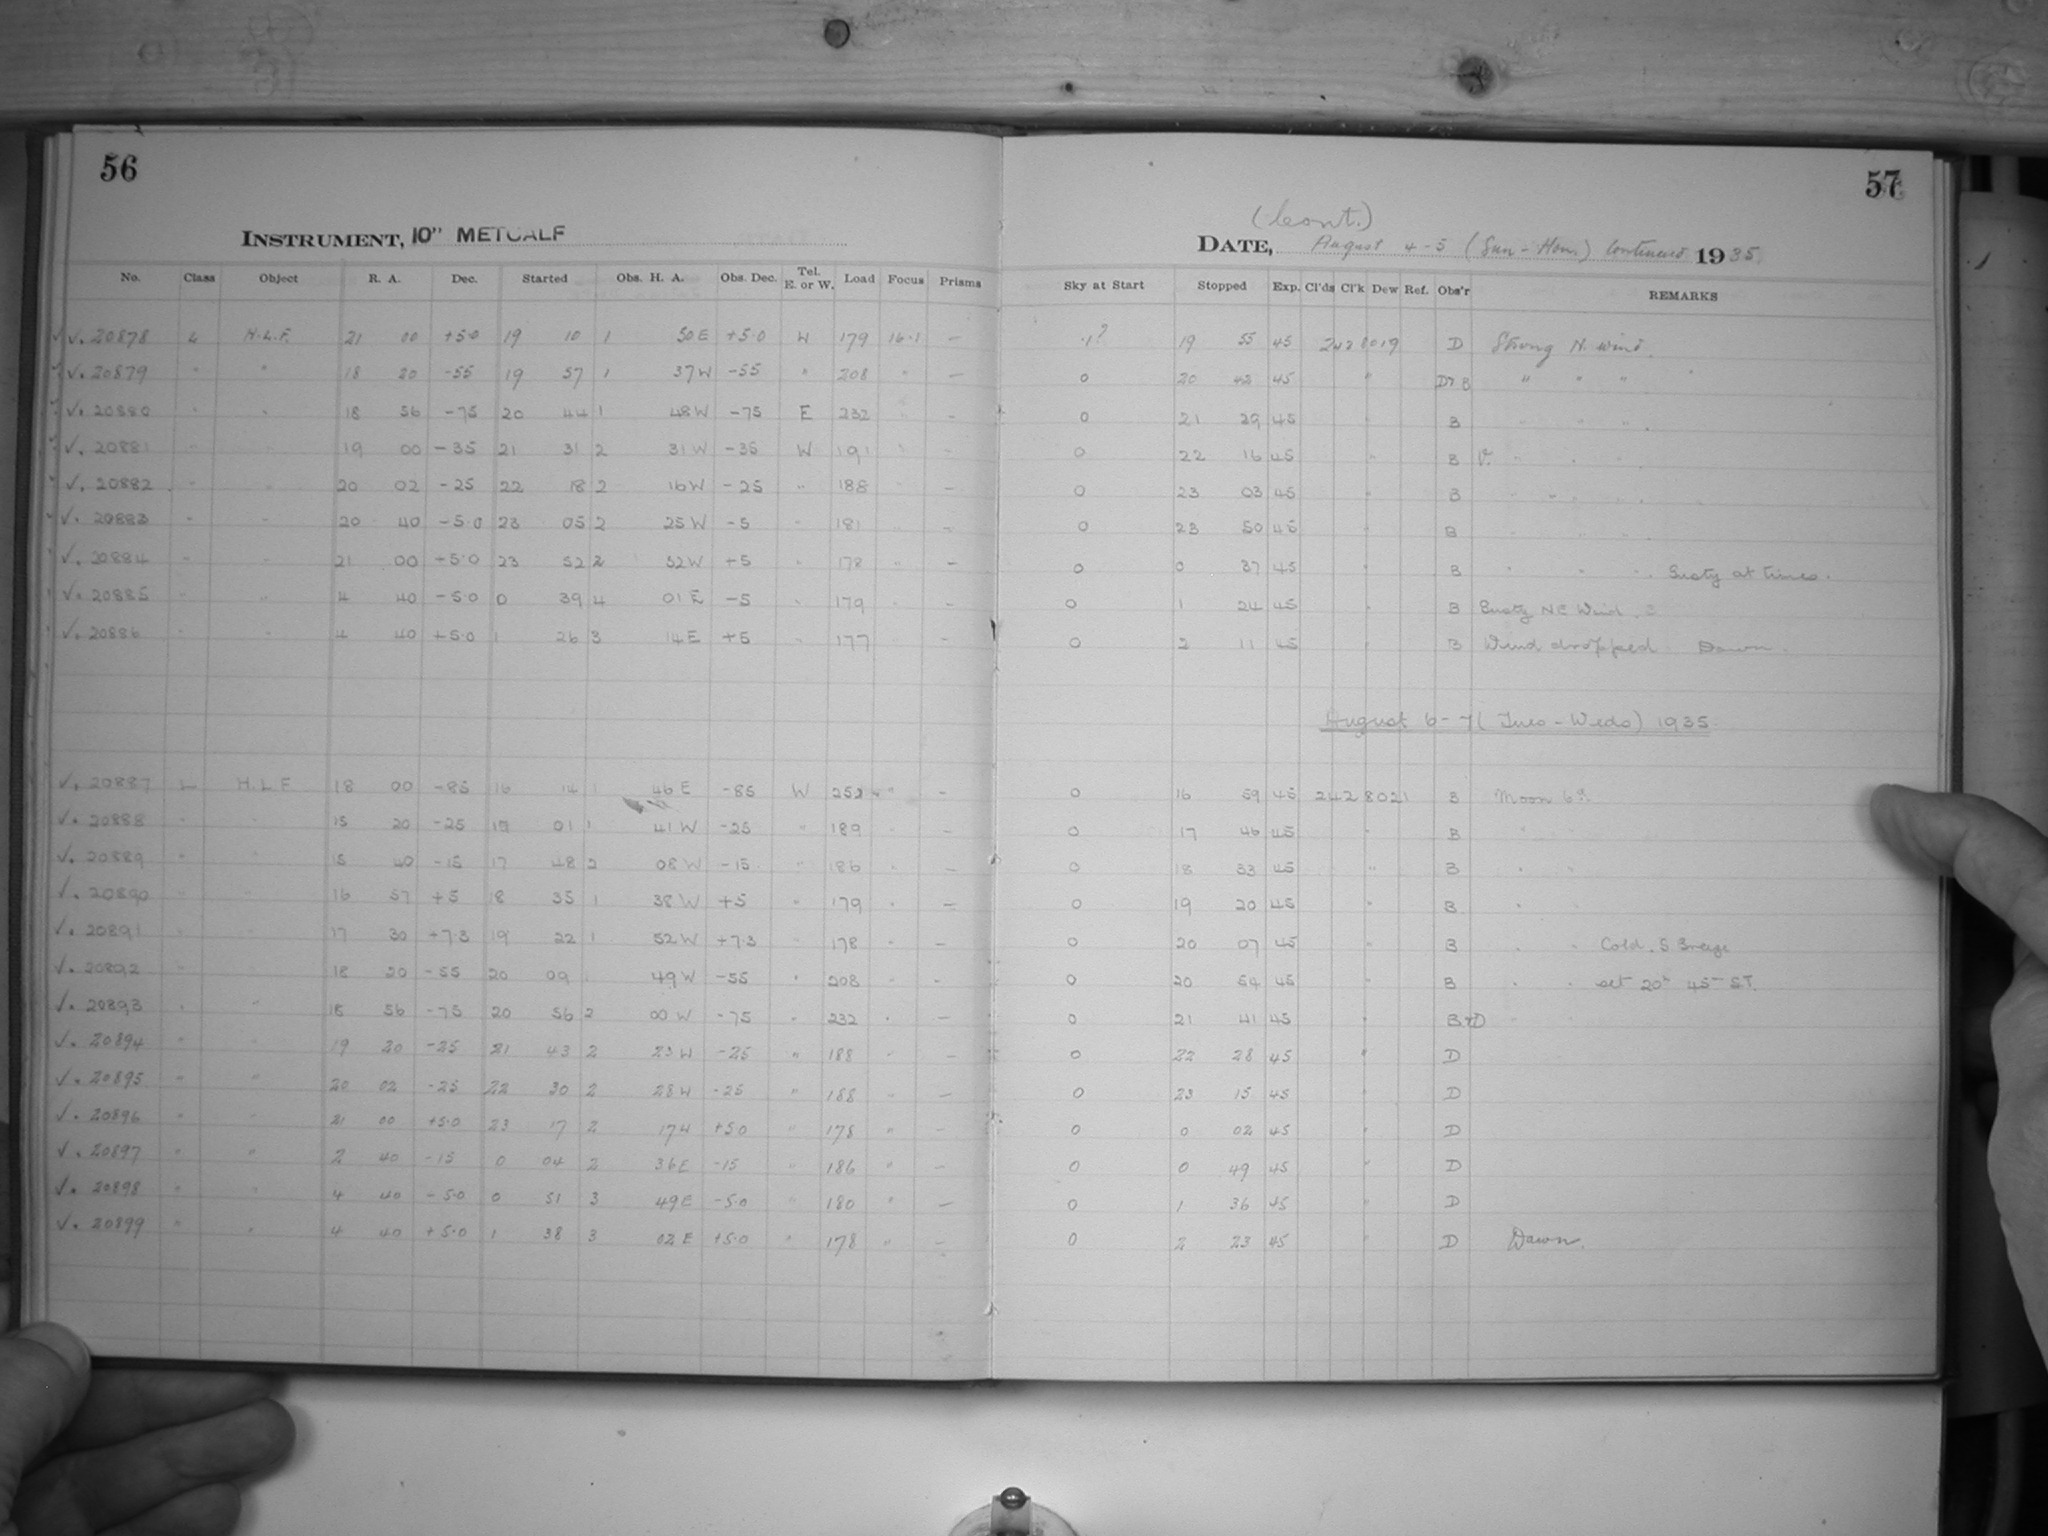 56
INSTRUMENT, 10" METCALF
No. Class Object R. A. Dec. Started Obs. H. A. Obs. Dec. Tel. E. or W. Load Focus Prisms
√. 20878 L H.L.F. 21 00 +5.0 19 10 1 50 E +5.0 W 179 16.1 —
√. 20879 " " 18 20 -55 19 57 1 37 W -55 " 208 " —
√. 20880 " " 18 56 -75 20 44 1 48 W -75 E 232 " —
√. 20881 " " 19 00 -35 21 31 2 31 W -35 W 191 " —
√. 20882 " " 20 02 -25 22 18 2 16 W -25 " 188 " —
√. 20883 " " 20 40 -5.0 23 05 2 25 W -5 " 181 " —
√. 20884 " " 21 00 +5.0 23 52 2 52 W +5 " 178 " —
√. 20885 " " 4 40 -5.0 0 39 4 01 E -5 " 179 " —
√. 20886 " " 4 40 +5.0 1 26 3 14 E +5 " 177 —
√. 20887 L H.L.F. 18 00 -85 16 14 1 46 E -85 W 252 " —
√. 20888 " " 15 20 -25 17 01 1 41 W -25 " 189 " —
√. 20889 " " 15 40 -15 17 48 2 08 W -15 " 186 " —
√. 20890 " " 16 57 +5 18 35 1 38 W +5 " 179 " —
√. 20891 " " 17 30 +7.3 19 22 1 52 W +7.3 " 178 " —
√. 20892 " " 18 20 -55 20 09 1 49 W -55 " 208 " —
√. 20893 " " 18 56 -75 20 56 2 00 W -75 " 232 " —
√. 20894 " " 19 20 -25 21 43 2 23 W -25 " 188 " —
√. 20895 " " 20 02 -25 22 30 2 28 W -25 " 188 " —
√. 20896 " " 21 00 +5.0 23 17 2 17 W +5.0 " 178 " —
√. 20897 " " 2 40 -15 0 04 2 36 E -15 " 186 " —
√. 20898 " " 4 40 -5.0 0 51 3 49 E -5.0 " 180 " —
√. 20899 " " 4 40 +5.0 1 38 3 02 E +5.0 " 178 " —
57
(Cont.)
DATE, August 4-5 (Sun - Mon) Continued 1935
Sky at Start Stopped Exp. Cl'ds Cl'k Dew Ref. Obs'r REMARKS
.1? 19 55 45 2428019 D Strong N. wind.
0 20 42 45 " D+B " " "
0 21 29 45 " B " " "
0 22 16 45 " B V. " " "
0 23 03 45 " B " " "
0 23 50 45 " B " " "
0 0 37 45 " B " " " Gusty at times.
0 1 24 45 " B Gusty NE Wind.
0 2 11 45 " B Wind dropped. Dawn.
August 6-7 (Tues - Weds) 1935
0 16 59 45 2428021 B Moon 6d.
0 17 46 45 " B " "
0 18 33 45 " B " "
0 19 20 45 " B "
0 20 07 45 " B " " Cold. S Breeze
0 20 54 45 " B " " set 20h 45m S.T.
0 21 41 45 " B+D " "
0 22 28 45 " D
0 23 15 45 " D
0 0 02 45 " D
0 0 49 45 " D
0 1 36 45 " D
0 2 23 45 " D Dawn.